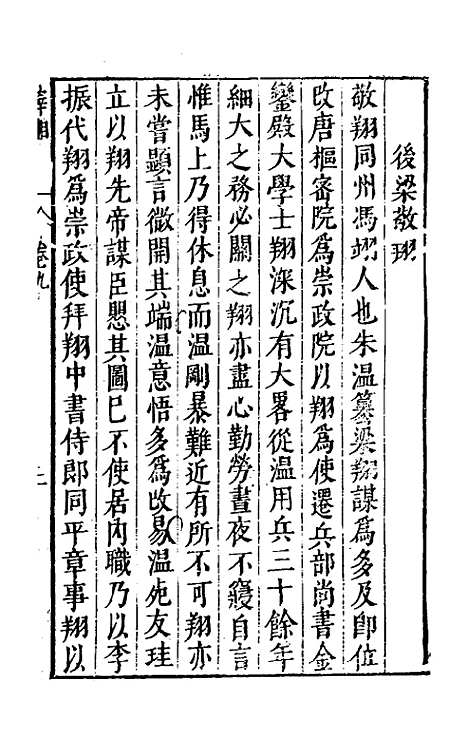 後梁敬翔
敬翔同州馮翊人也朱温簒梁翔謀爲多及卽位
改唐樞密院爲崇政院以翔爲使遷兵部尚書金
鑾殿大學士翔深沉有大畧從温用兵三十餘年
細大之務必關之翔亦盡心勤勞晝夜不寢自言
惟馬上乃得休息而温剛暴難近有所不可翔亦
未嘗顯言微開其端温意悟多爲改易温死友珪
立以翔先帝謀臣懼其圖已不使居內職乃以李
振代翔爲崇政使拜翔中書侍郎同平章事翔以
卷九